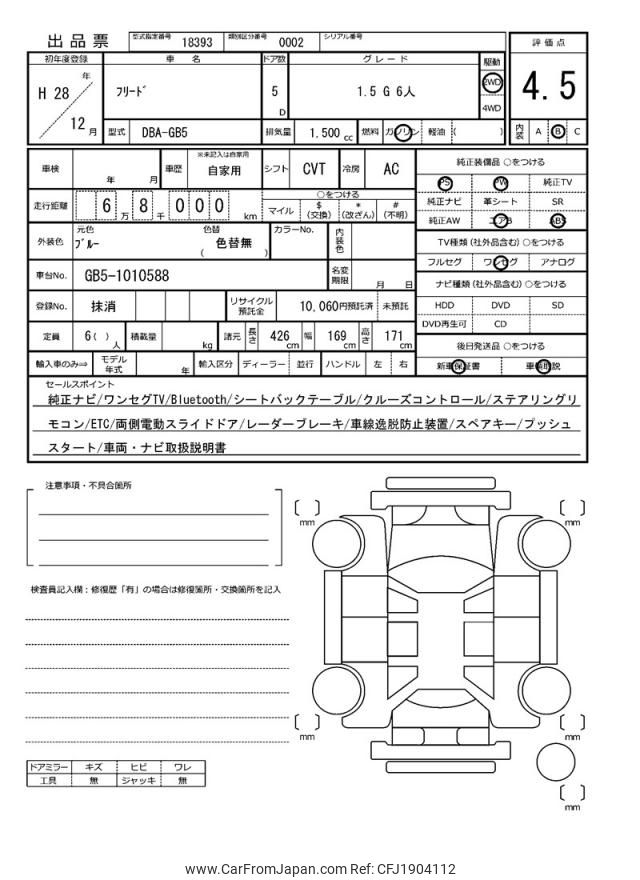 出品票 型式指定番号 18393 類別区分番号 0002 シリアル番号
初年度登録 車 名 ドア数 グレード 駆動 評価点
H 28 年 12 月 フリード 5 D 1.5 G 6人 2WD 4WD 4.5
型式 DBA-GB5 排気量 1.500 cc 燃料 ガソリン 軽油 ( ) 内装 A B C
車検 年 月 車歴 ※未記入は自家用 自家用 シフト CVT 冷房 AC
走行距離 6 万 8 千 0 0 0 km ○をつける マイル $(交換) *(改ざん) #(不明)
外装色 元色 ブルー 色替 ( 色替無 ) カラーNo. 内装色
車台No. GB5-1010588 名変期限 月 日
登録No. 抹消 リサイクル預託金 10,060円預託済 未預託
定員 6( ) 人 積載量 kg 諸元 長さ 426 cm 幅 169 cm 高さ 171 cm
輸入車のみ⇒ モデル年式 年 輸入区分 ディーラー 並行 ハンドル 左 右
純正装備品 ○をつける
PS PW 純正TV
純正ナビ 革シート SR
純正AW エアB ABS
TV種類(社外品含む) ○をつける
フルセグ ワンセグ アナログ
ナビ種類(社外品含む) ○をつける
HDD DVD SD
DVD再生可 CD
後日発送品 ○をつける
新車保証書 車輌取説
セールスポイント
純正ナビ/ワンセグTV/Bluetooth/シートバックテーブル/クルーズコントロール/ステアリングリ
モコン/ETC/両側電動スライドドア/レーダーブレーキ/車線逸脱防止装置/スペアキー/プッシュ
スタート/車両・ナビ取扱説明書
注意事項・不具合箇所
検査員記入欄：修復歴「有」の場合は修復箇所・交換箇所を記入
ドアミラー キズ ヒビ ワレ
工具 無 ジャッキ 無
[ ] mm
[ ] mm
[ ] mm
[ ] mm
[ ] mm
www.CarFromJapan.com Ref: CFJ1904112